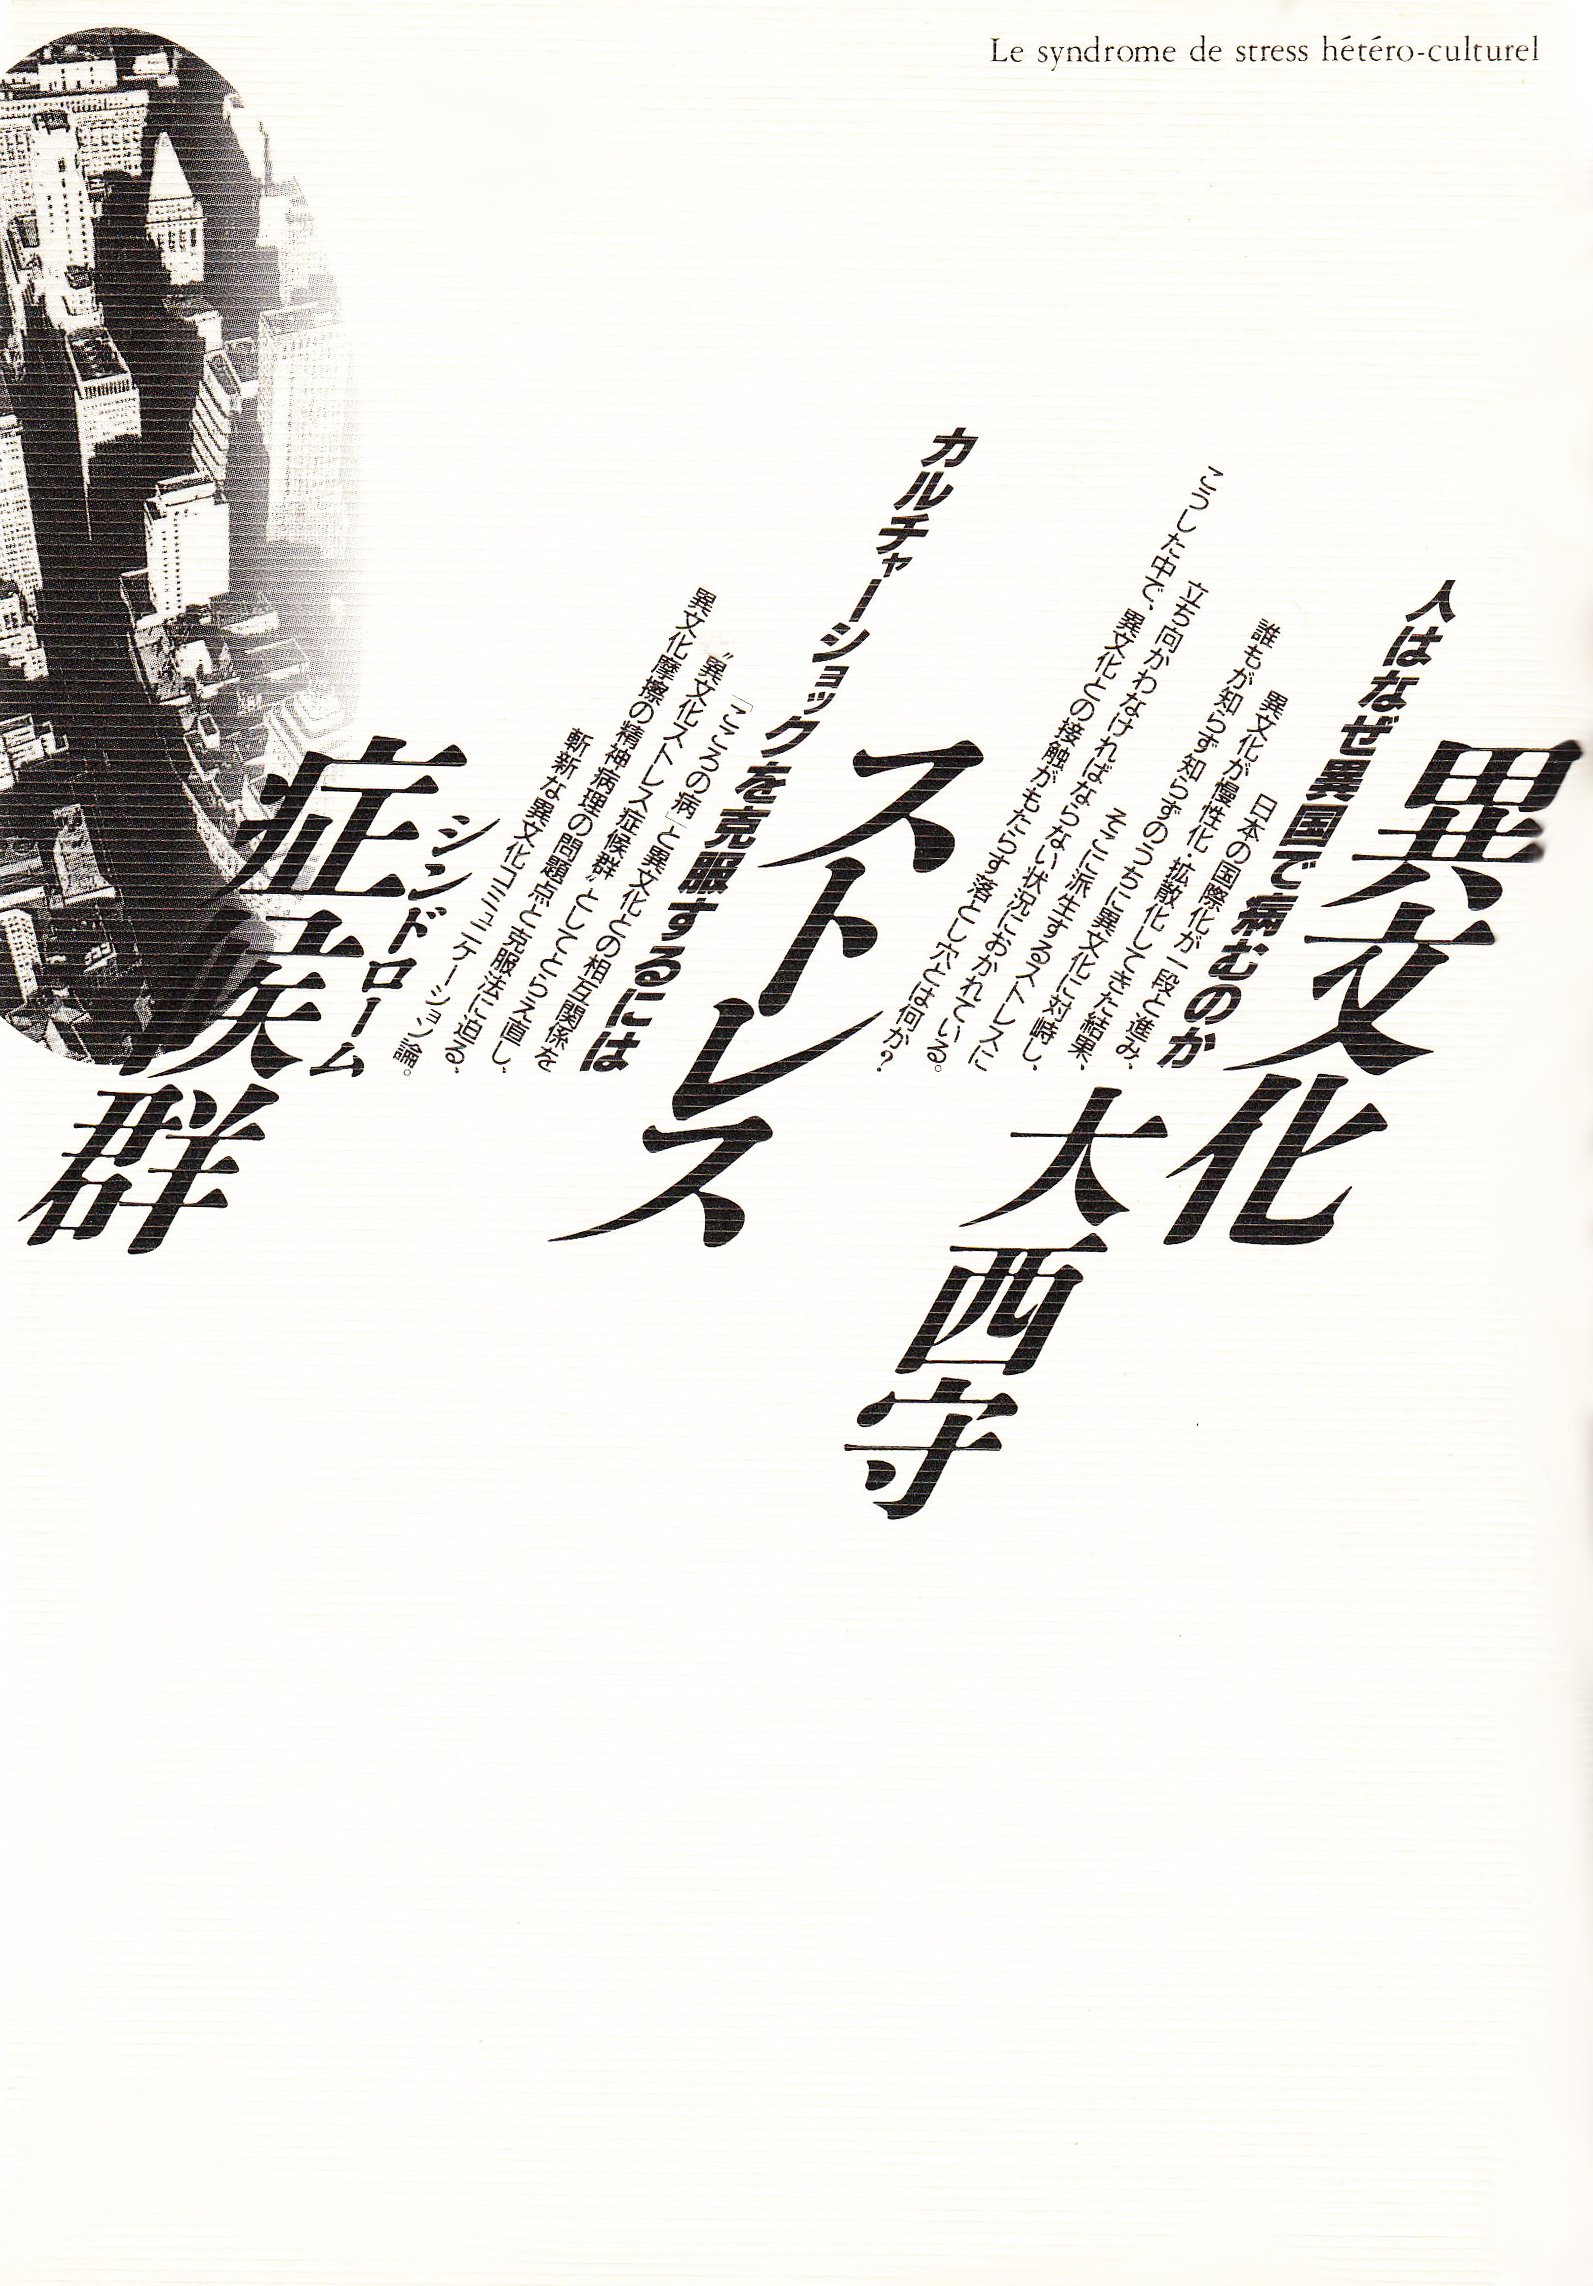 Le syndrome de stress hétéro-culturel
異文化
人はなぜ異国で病むのか
日本の国際化が一段と進み、
異文化が慢性化・拡散化してきた結果、
誰もが知らず知らずのうちに異文化に対峙し、
そこに派生するストレスに
立ち向かわなければならない状況におかれている。
こうした中で、異文化との接触がもたらす落とし穴とは何か?
大西守
ストレス
カルチャーショックを克服するには
「こころの病」と異文化との相互関係を
〝異文化ストレス症候群〟としてとらえ直し、
異文化摩擦の精神病理の問題点と克服法に迫る、
斬新な異文化コミュニケーション論。
シンドローム
症候群